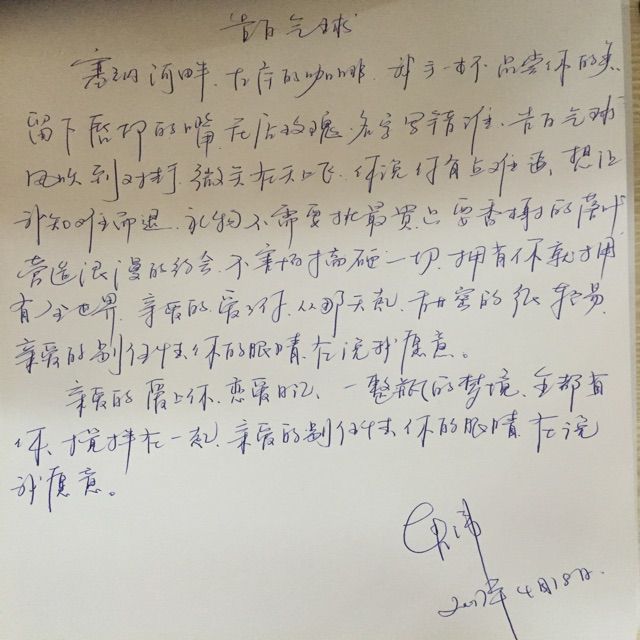 告白气球
塞纳河畔、左岸的咖啡、我手一杯品尝你的美
留下唇印的嘴、花店玫瑰、名字写错谁、告白气球
风吹到对街、微笑在天上飞、你说你有点难追、想让
我知难而退、礼物不需要挑最贵只要香榭的落叶
营造浪漫的约会、不害怕搞砸一切、拥有你就拥
有全世界、亲爱的、爱上你、从那天起、甜蜜的很轻易、
亲爱的别任性、你的眼睛、在说我愿意。
亲爱的爱上你、恋爱日记、一整瓶的梦境、全都有
你、搅拌在一起、亲爱的别任性、你的眼睛、在说
我愿意。
2017年4月18日.